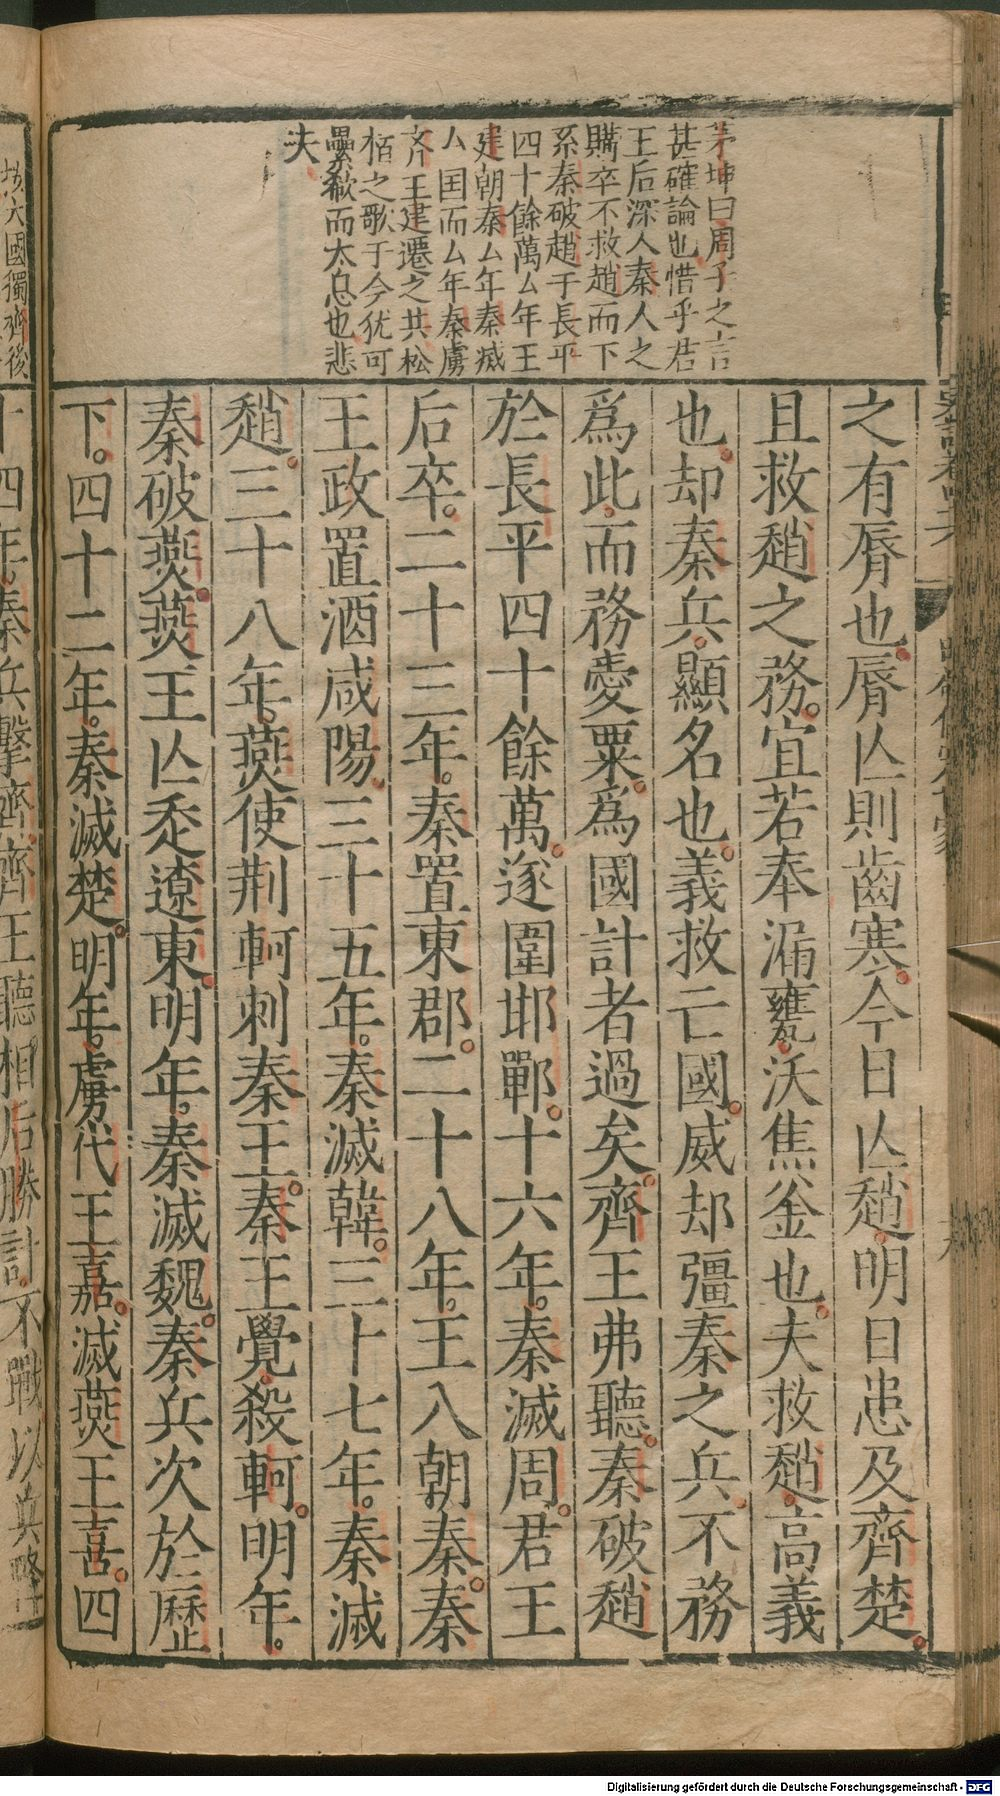 茅坤曰周子之言
甚確論也惜乎君
王后深人秦人之
購卒不救趙而下
系秦破趙于長平
四十餘萬厶年王
建朝秦厶年秦滅
厶国而厶年秦虜
齐王建遷之共松
栢之歌于今犹可
纍欷而太息也悲
夫
之有脣也脣亾則齒寒今日亾趙明日患及齊楚
且救趙之務宜若奉漏甕沃焦釜也夫救趙高義
也却秦兵顯名也義救亡國威却彊秦之兵不務
爲此而務愛粟爲國計者過矣齊王弗聽秦破趙
於長平四十餘萬遂圍邯鄲十六年秦滅周君王
后卒二十三年秦置東郡二十八年王入朝秦秦
王政置酒咸陽三十五年秦滅韓三十七年秦滅
趙三十八年燕使荆軻刺秦王秦王覺殺軻明年
秦破燕燕王亾走遼東明年秦滅魏秦兵次於歷
下四十二年秦滅楚明年虜代王嘉滅燕王喜四
六國獨齊後
十四年秦兵擊齊齊王聽相后勝計不戰以兵降
Digitalisierung gefördert durch die Deutsche Forschungsgemeinschaft - DFG